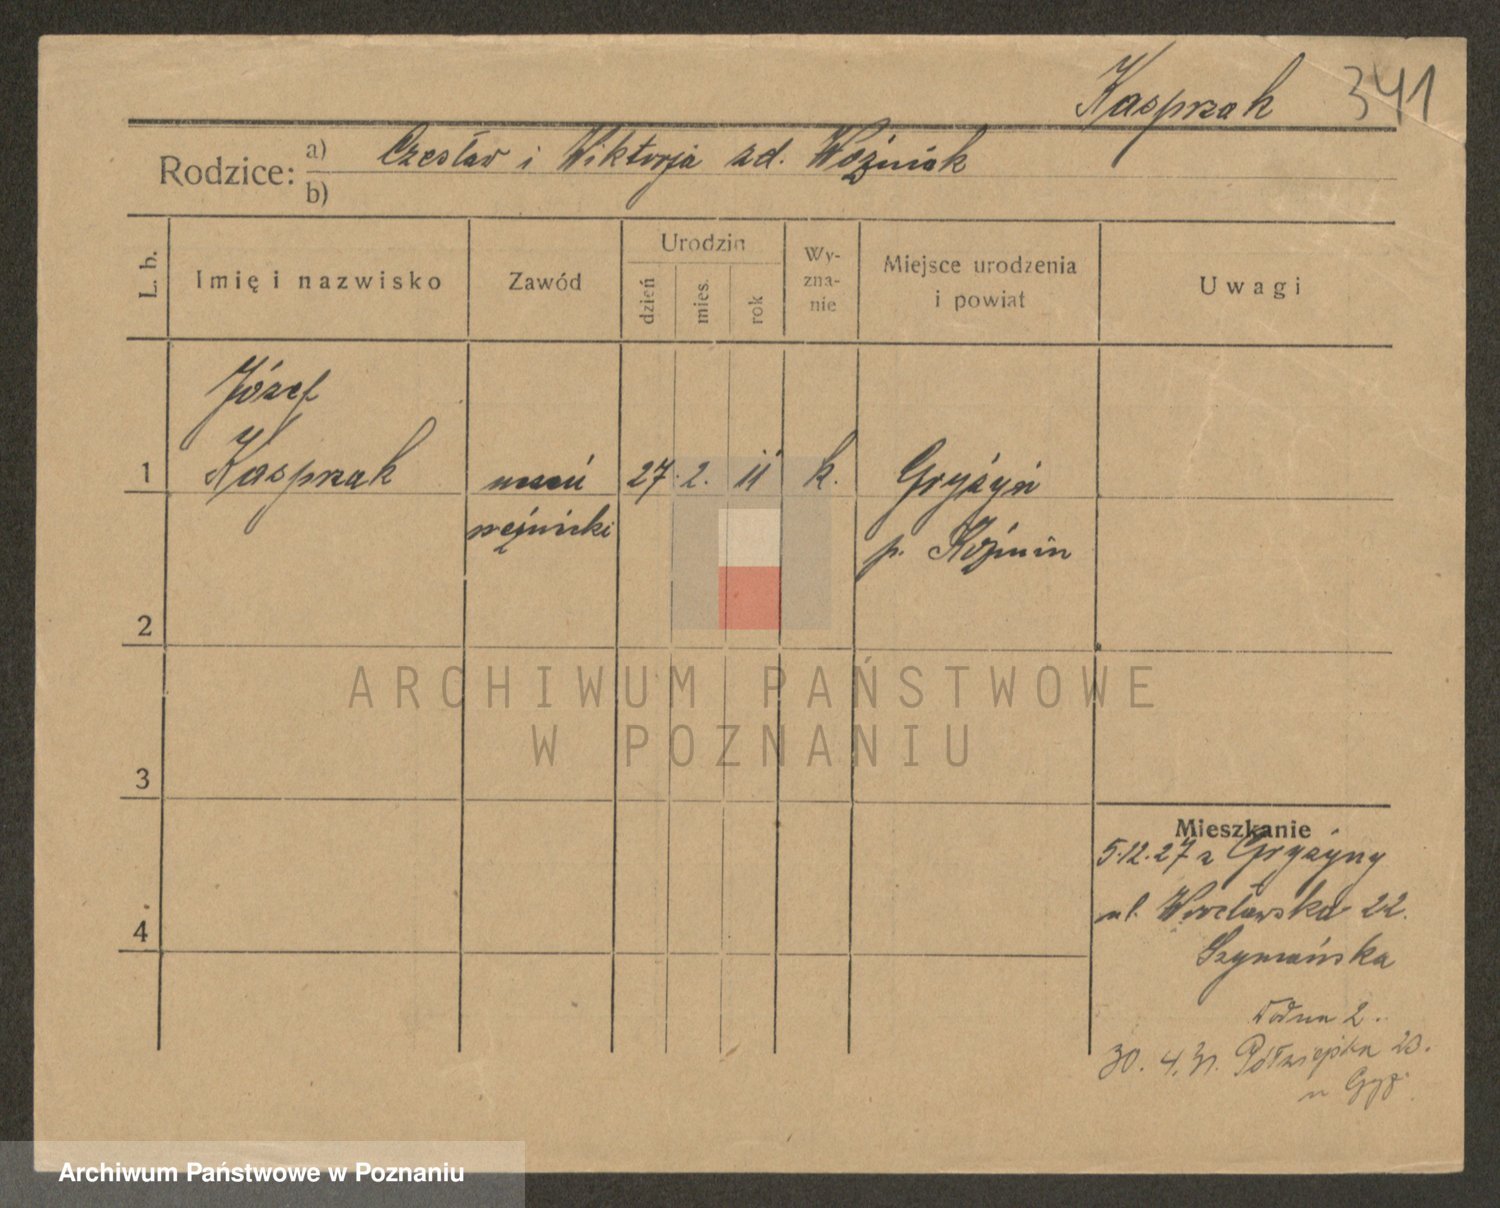 Kasprzak 341
Rodzice: a) Czesław i Wiktorja zd. Woźniak
b)
L. b.
Imię i nazwisko
Zawód
Urodzin
dzień
mies.
rok
Wy-
zna-
nie
Miejsce urodzenia
i powiat
Uwagi
Józef
1 Kasprzak uczeń 27. 2. 11 k. Gryżyń
p. Koźmin
2
3
4
Mieszkanie
5.12.27 z Gryżyny
ul. Wrocławska 22.
Szymańska
Wodna 2.
30. 4. 31. Półwiejska 20.
ARCHIWUM PAŃSTWOWE
W POZNANIU
Archiwum Państwowe w Poznaniu